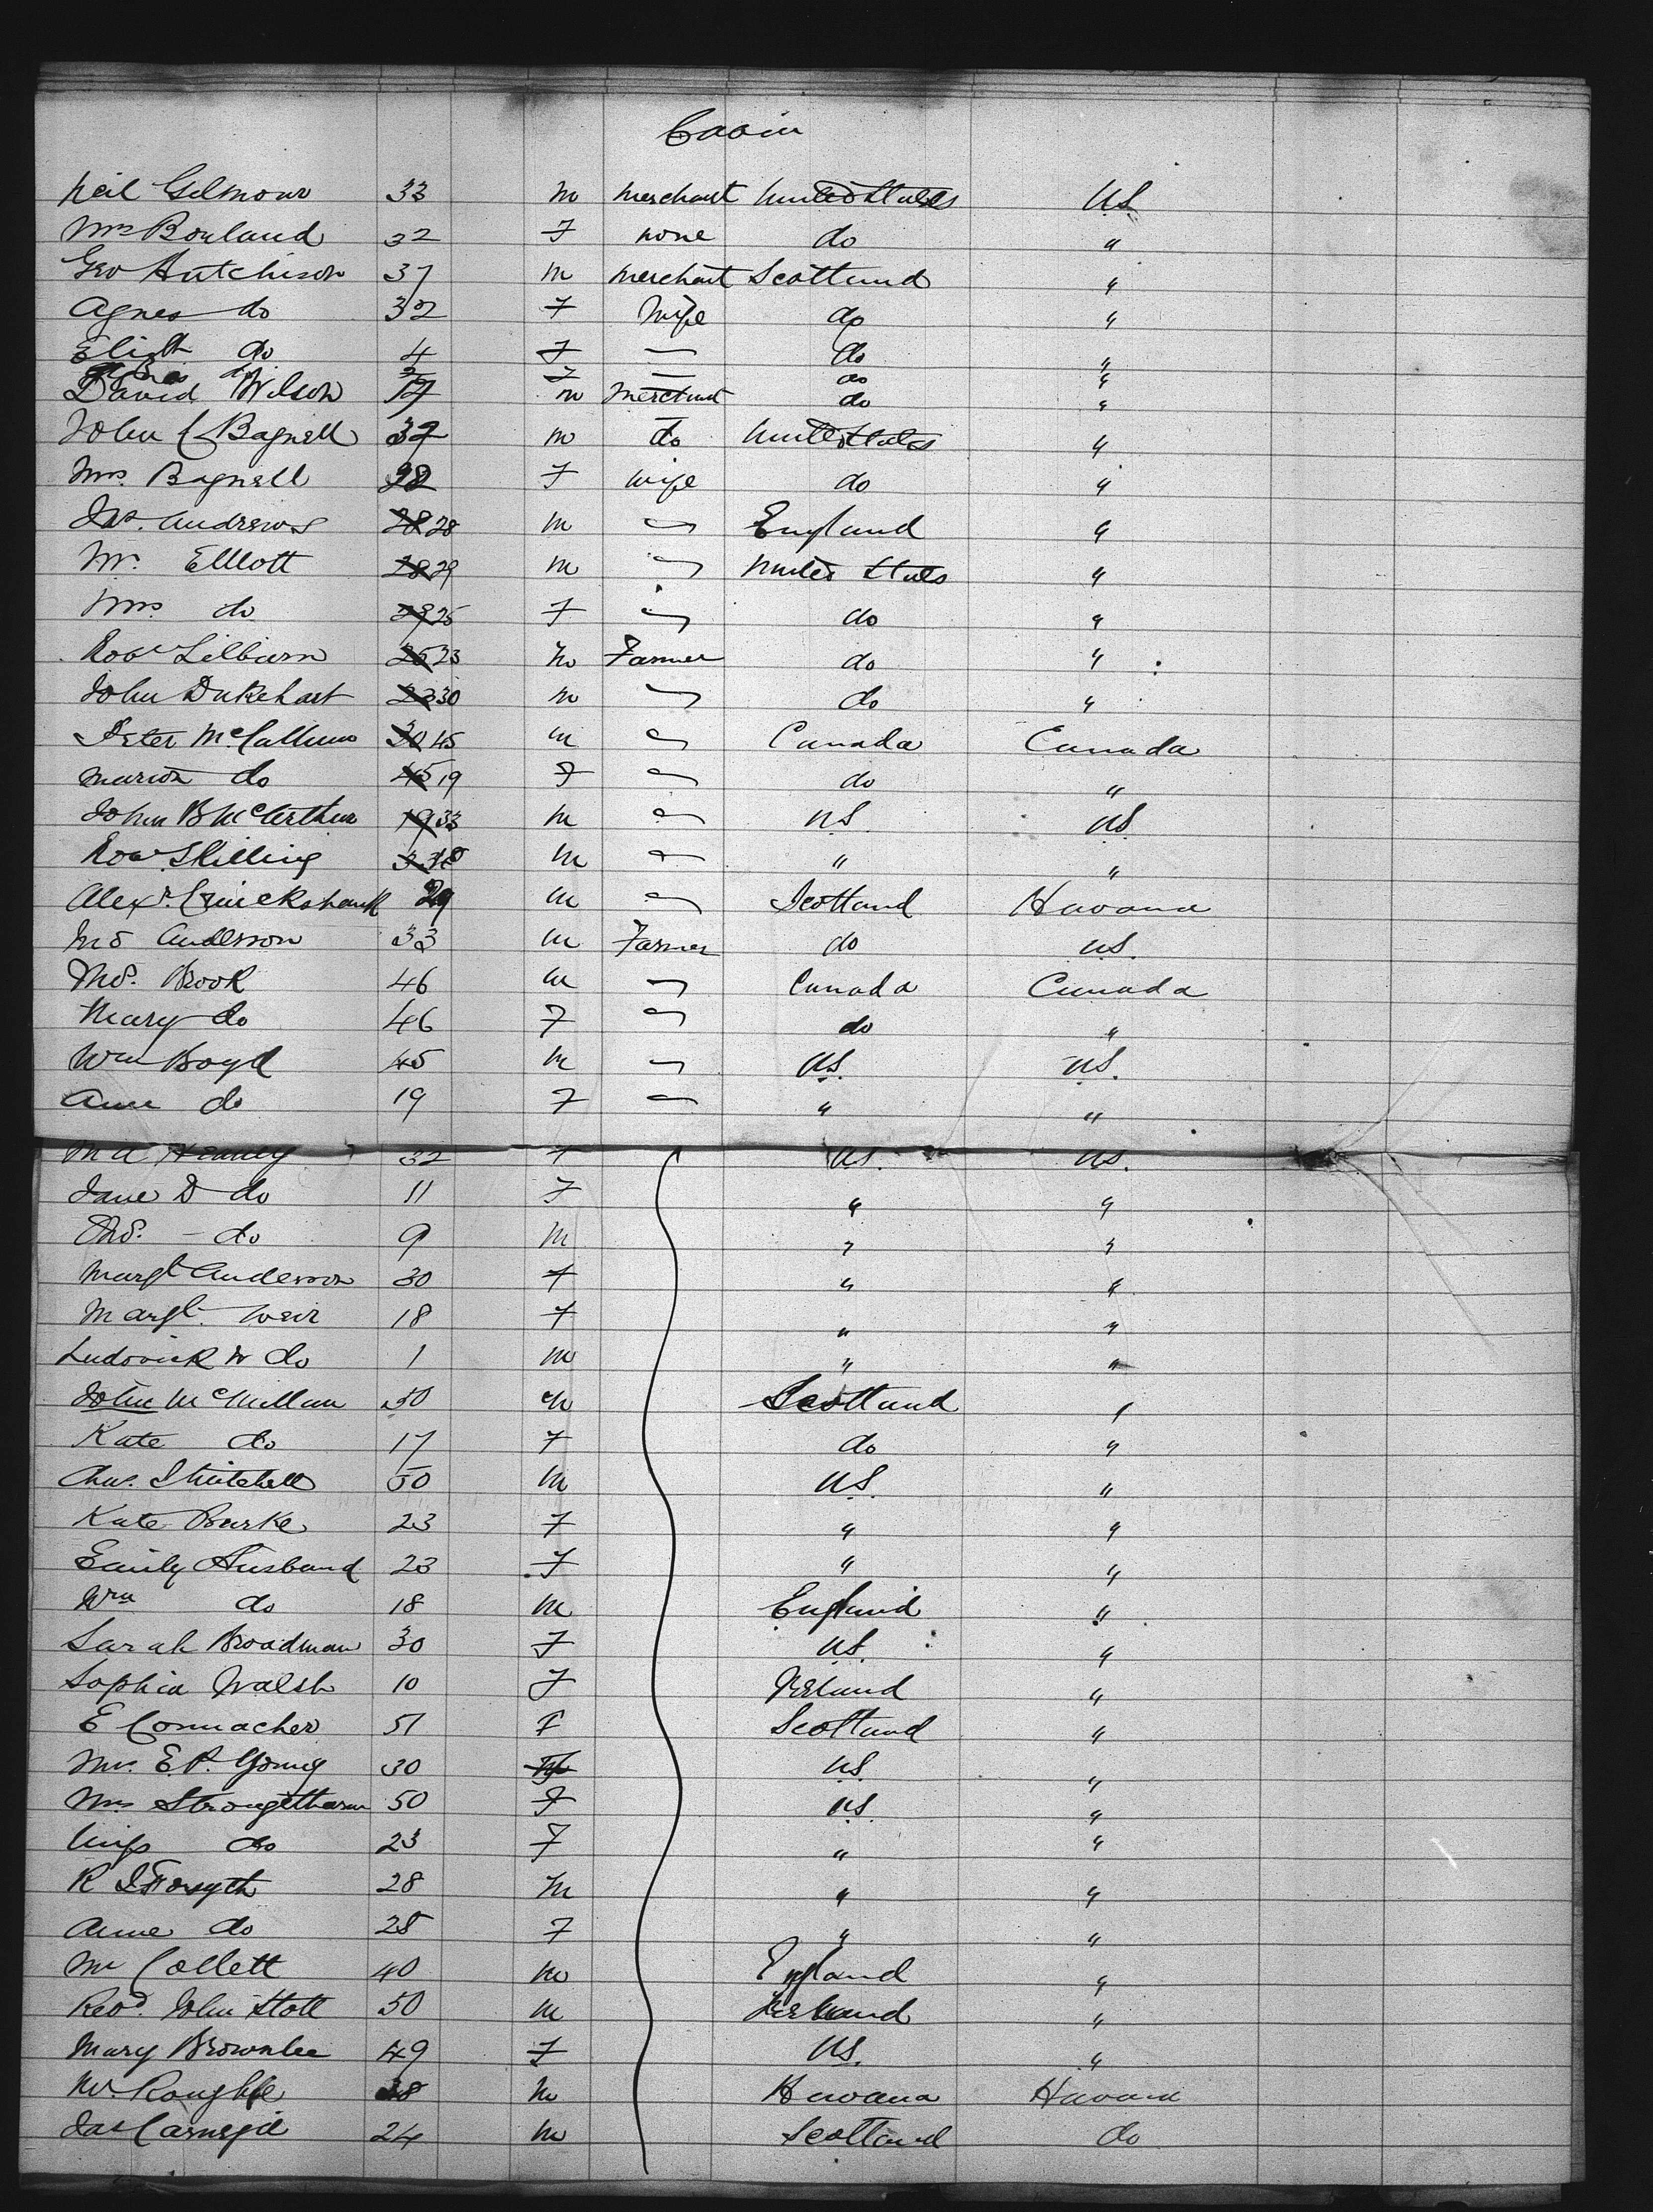 Cabin
Neil Gilmour 33 M Merchant United States U.S.
Mrs Bouland 32 F none do "
Geo Hutchison 37 M Merchant Scotland "
Agnes do 32 F Wife do "
Elizth do 4 F — do "
do F — do "
David Wilson M Merchant do "
John C Bagnell 37 M do United States "
Mrs. Bagnell F wife do "
Jas. Andrews 28 28 M — England "
Mr. Elllott 28 29 M — United States "
Mrs do 29 25 F — do "
Robt Lilburn 25 23 M Farmer do "
John Dukehart 23 30 M — do "
Peter McCallum 30 45 M — Canada Canada
Marion do 45 19 F — do "
John B McArthur 19 33 M — U.S. U.S.
Robt Skilling M — " "
Alexr. Cruickshank 29 M — Scotland Havana
Anderson 33 M Farmer do U.S.
Thos. Brook 46 M — Canada Canada
Mary do 46 F — do "
Wm Boyd 45 M — U.S. U.S.
Anne do 19 F — " "
M A 32 F U.S. U.S.
Jane D do 11 F " "
Thos. - do 9 M " "
Margt Anderson 30 F " "
Margt. Weir 18 F " "
Ludovick W do 1 M " "
John McMillan 50 M Scotland "
Kate do 17 F do "
Chas. S Mitchell 50 M U.S. "
Kate Burke 23 F " "
Emily Husband 23 F " "
Wm do 18 M England "
Sarah Broadman 30 F U.S. "
Sophia Walsh 10 F Ireland "
E Connacher 51 F Scotland "
E.P. Young 30 U.S. "
Mrs Strongitharm 50 F U.S. "
Miss do 23 F " "
R J Forsyth 28 M " "
Anne do 28 F " "
Mr Collett 40 M England "
Revd. John Stott 50 M Ireland "
Mary Brownlee 49 F U.S. "
Mr 38 M Havana Havana
Jas Carnegie 24 M Scotland do